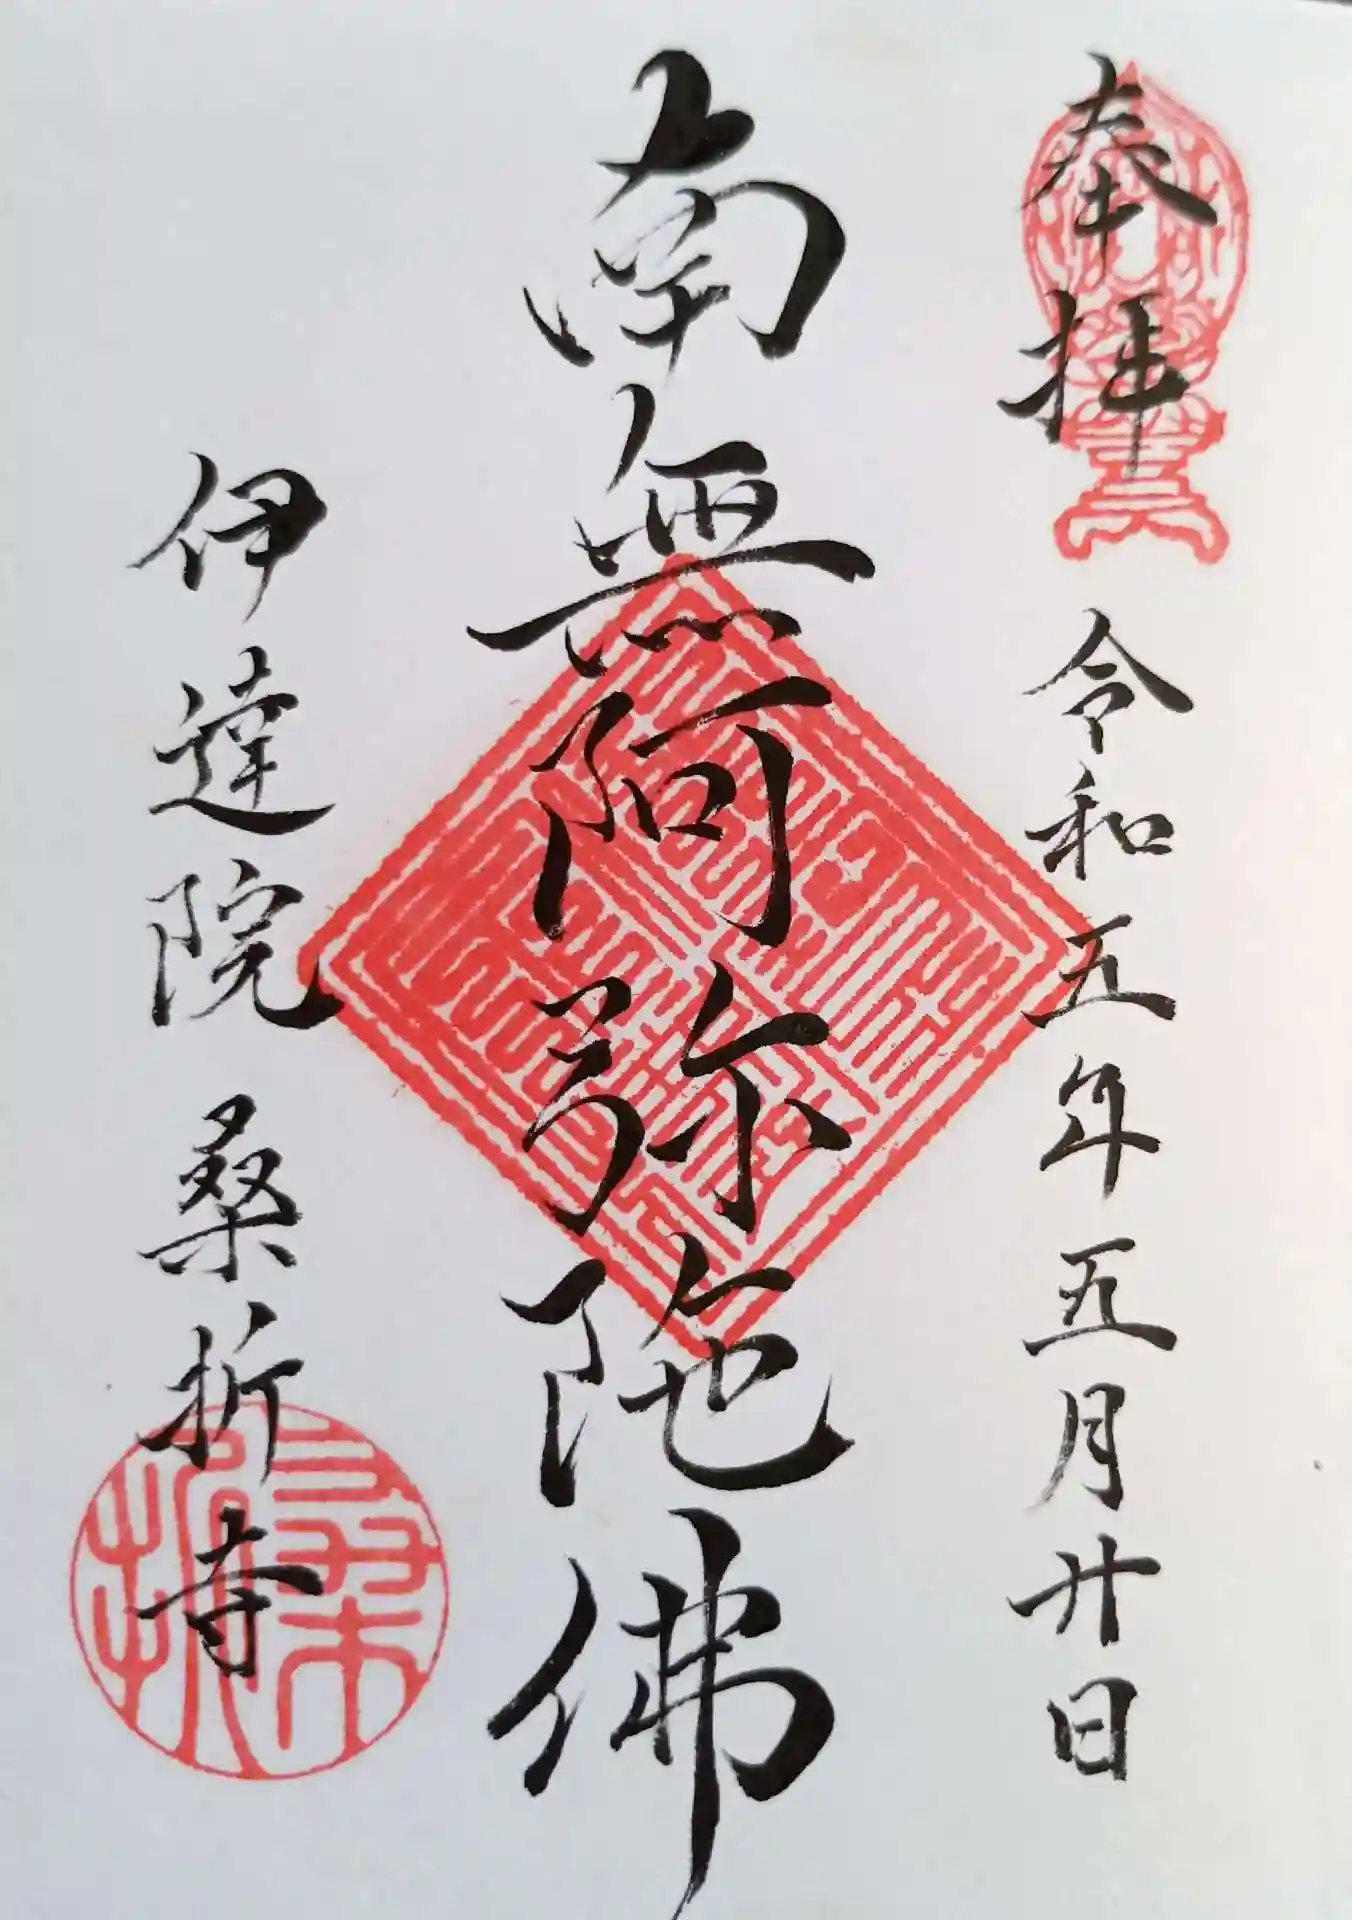 奉拝 令和五年五月廿日
南無阿弥陀佛
伊達院 桑折寺
桑折